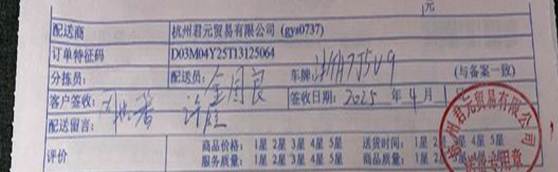 元
配送商 杭州君元贸易有限公司 (gys0737)
订单特征码 D03M04Y25T13125064
分拣员: 配送员: 金国良 车牌 (与备案一致)
客户签收: 签收日期: 2025 年 4 月
配送留言:
评价 商品价格: 1星 2星 3星 4星 5星 送货时间: 1星 2星 3星 4星 5星
服务质量: 1星 2星 3星 4星 5星 商品质量: 1星 2星
杭州君元贸易有限公司